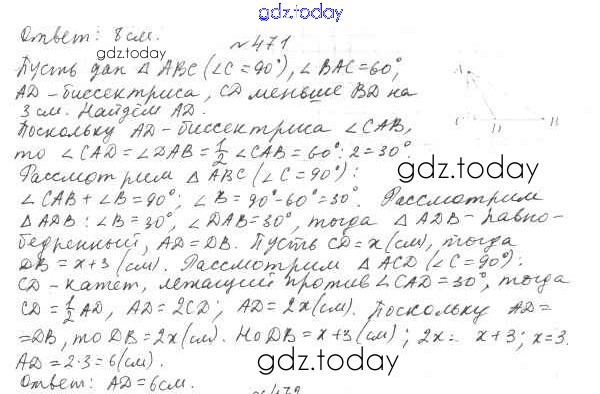 gdz.today
Ответ: 8 см.
gdz.today
№471
Пусть дан △ ABC (∠C=90°), ∠BAC=60°,
AD-биссектриса, CD меньше BD на
3 см. Найдём AD.
A
C D B
Поскольку AD-биссектриса ∠CAB,
то ∠CAD=∠DAB=1/2 ∠CAB=60°:2=30°.
gdz.today
Рассмотрим △ ABC (∠C=90°):
∠CAB+∠B=90°, ∠B=90°-60°=30°. Рассмотрим
△ADB: ∠B=30°, ∠DAB=30°, тогда △ADB-равно-
бедренный, AD=DB. Пусть CD=x(см), тогда
DB=x+3(см). Рассмотрим △ACD (∠C=90°):
gdz.today
CD-катет, лежащий против ∠CAD=30°, тогда
CD=1/2 AD, AD=2CD; AD=2x(см). Поскольку AD=
=DB, то DB=2x(см). Но DB=x+3(см); 2x= x+3; x=3.
AD=2·3=6(см).
gdz.today
Ответ: AD=6см.
№472